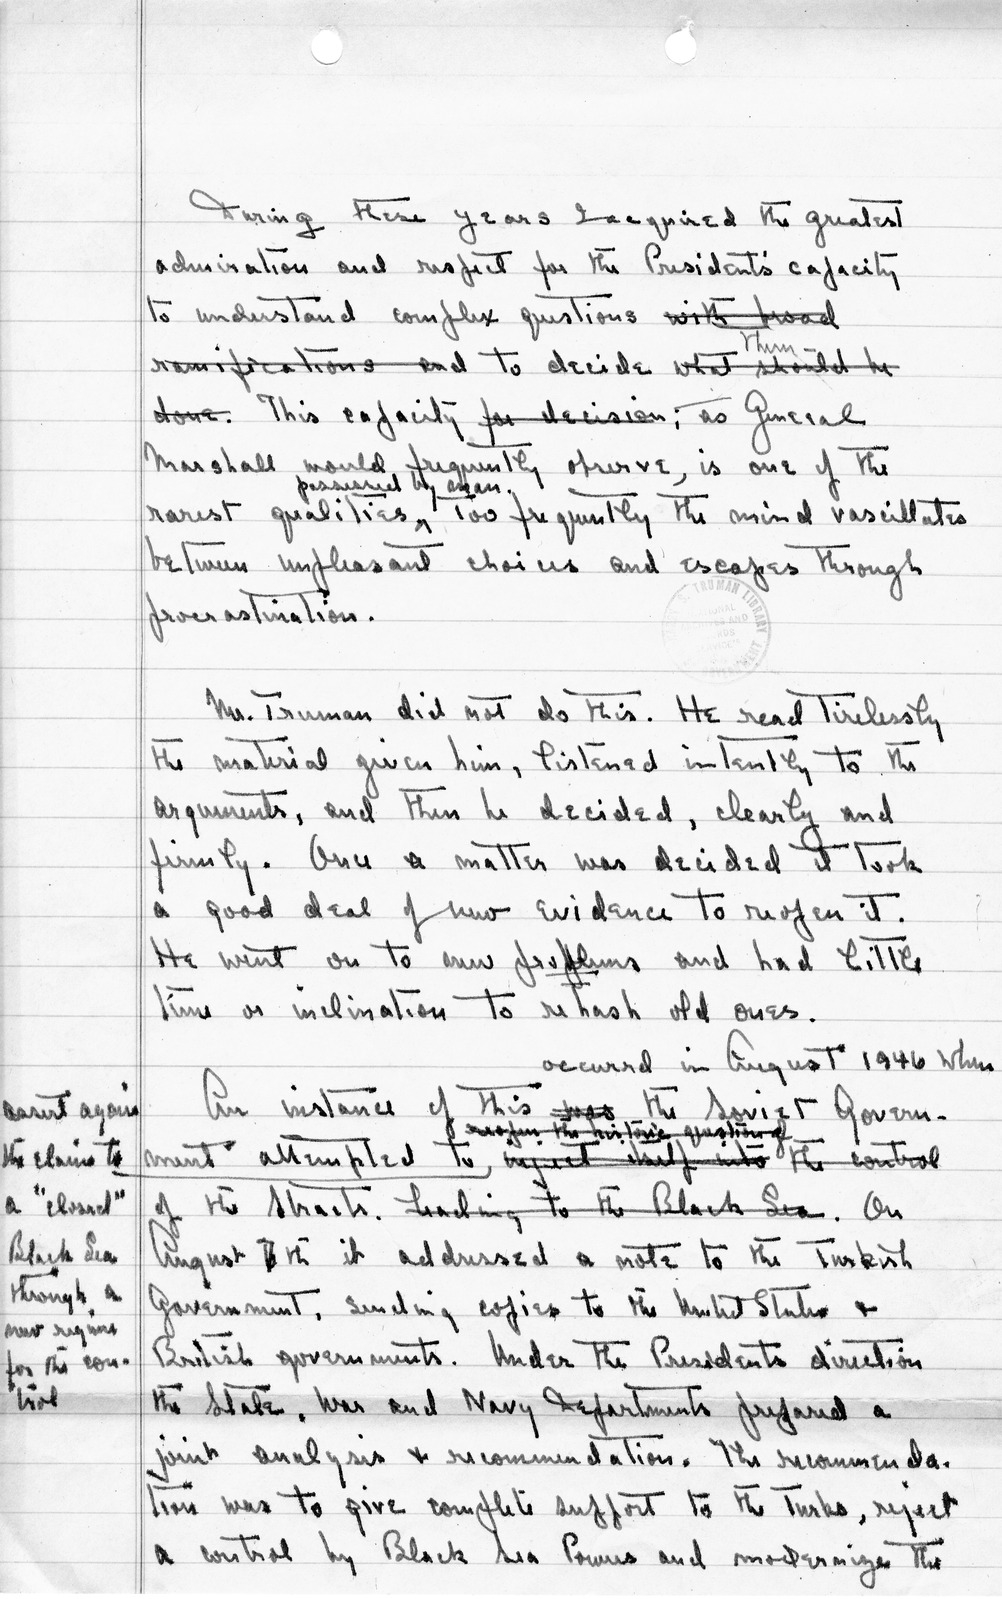 During these years I acquired the greatest
admiration and respect for the President's capacity
to understand complex questions with broad
ramifications and to decide what should be
them
done. This capacity for decision, as General
Marshall would frequently observe, is one of the
possessed by man.
rarest qualities. Too frequently the mind vascillates
between unpleasant choices and escapes through
procrastination.
TRUMAN LIBRARY
Mr. Truman did not do this. He read tirelessly
the material given him, listened intently to the
arguments, and then he decided, clearly and
firmly. Once a matter was decided it took
a good deal of new evidence to reopen it.
He went on to new problems and had little
time or inclination to rehash old ones.
occurred in August 1946 when
An instance of this was the Soviet Govern-
reopen the historic question of
ment attempted to inject itself into the control
of the Straits. Leading to the Black Sea. On
August 7th it addressed a note to the Turkish
Government, sending copies to the United States &
British governments. Under the Presidents direction
the State, War and Navy Departments prepared a
joint analysis & recommendation. The recommenda-
tion was to give complete support to the Turks, reject
a control by Black Sea Powers and modernize the
assert again
the claim to
a "closed"
Black Sea
through a
new regime
for the con-
trol